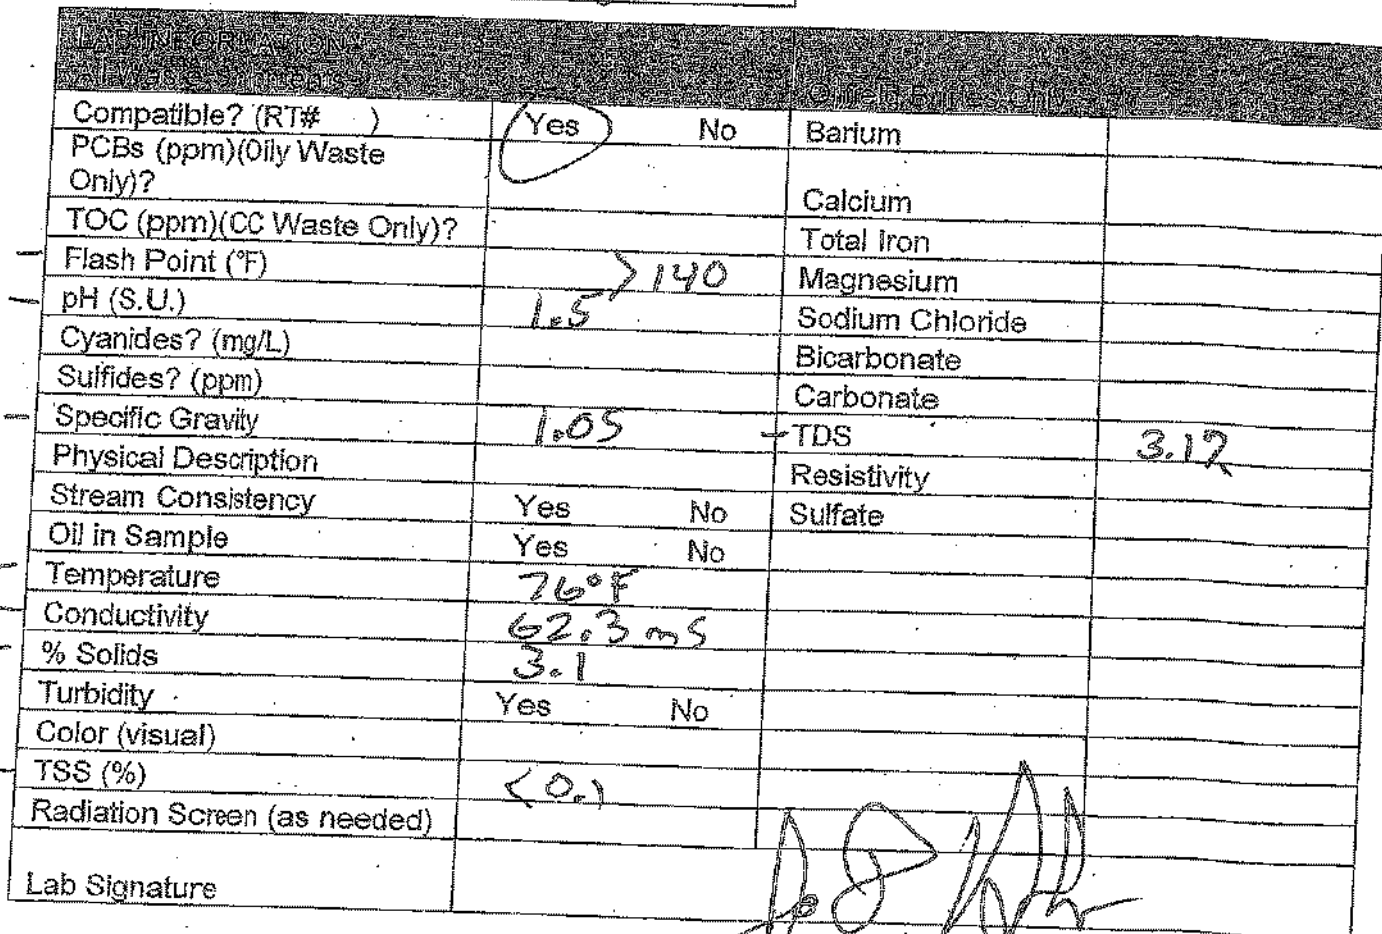 LAB INFORMATION
All Waste Streams
Oilfield Brines Only
Compatible? (RT# ) Yes No Barium
PCBs (ppm)(Oily Waste
Only)? Calcium
TOC (ppm)(CC Waste Only)? Total Iron
Flash Point (°F) >140 Magnesium
pH (S.U.) 1.5 Sodium Chloride
Cyanides? (mg/L) Bicarbonate
Sulfides? (ppm) Carbonate
Specific Gravity 1.05 TDS
Physical Description Resistivity
Stream Consistency Yes No Sulfate
Oil in Sample Yes No
Temperature 76°F
Conductivity 62.3 mS
% Solids 3.1
Turbidity Yes No
Color (visual)
TSS (%) <0.1
Radiation Screen (as needed)
Lab Signature